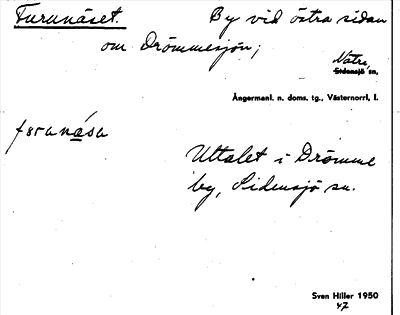 Furunäset. By vid östra sidan
om Drömmesjön;
Nätra,
Sidensjö sn,
Ångermanl. n. doms. tg., Västernorrl. l.
Uttalet i Drömme
by, Sidensjö sn.
Sven Hiller 1950
42